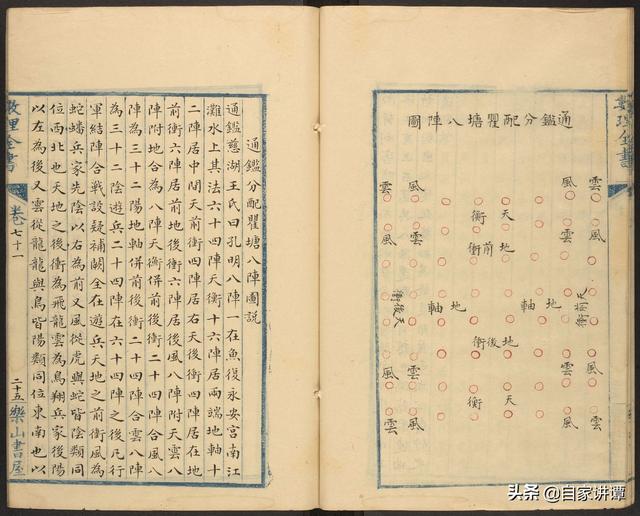 通鑑分配瞿塘八陣圖
數理全書
雲 風 風 雲
風 雲 雲 風
天
衝
地前衝
天前衝
地軸
地軸
天後衝
地後衝
風 雲 雲 風
雲 風 風 雲
天
衝
通鑑分配瞿塘八陣圖說
通鑑慈湖王氏曰孔明八陣一在魚復永安宮南江
灘水上其法六十四陣天衝十六陣居兩端地軸十
二陣居中間天前衝四陣居右天後衝四陣居左地
前衝六陣居前地後衝六陣居後風八陣附天雲八
陣附地合為八陣天衝併前後衝二十四陣合風八
陣為三十二陽地軸併前後衝二十四陣合雲八陣
為三十二陰遊兵二十四陣在六十四陣之後凡行
軍結陣合戰設疑補闕全在遊兵天地之前衝風為
蛇蟠兵家先陰以右為前又風從虎與蛇皆陰類同
位西北也天地之後衝為飛龍雲為鳥翔兵家後陽
以左為後又雲從龍龍與鳥皆陽類同位東南也以
數理全書
卷七十一
二十五
樂山書屋
头条 @自家讲谭